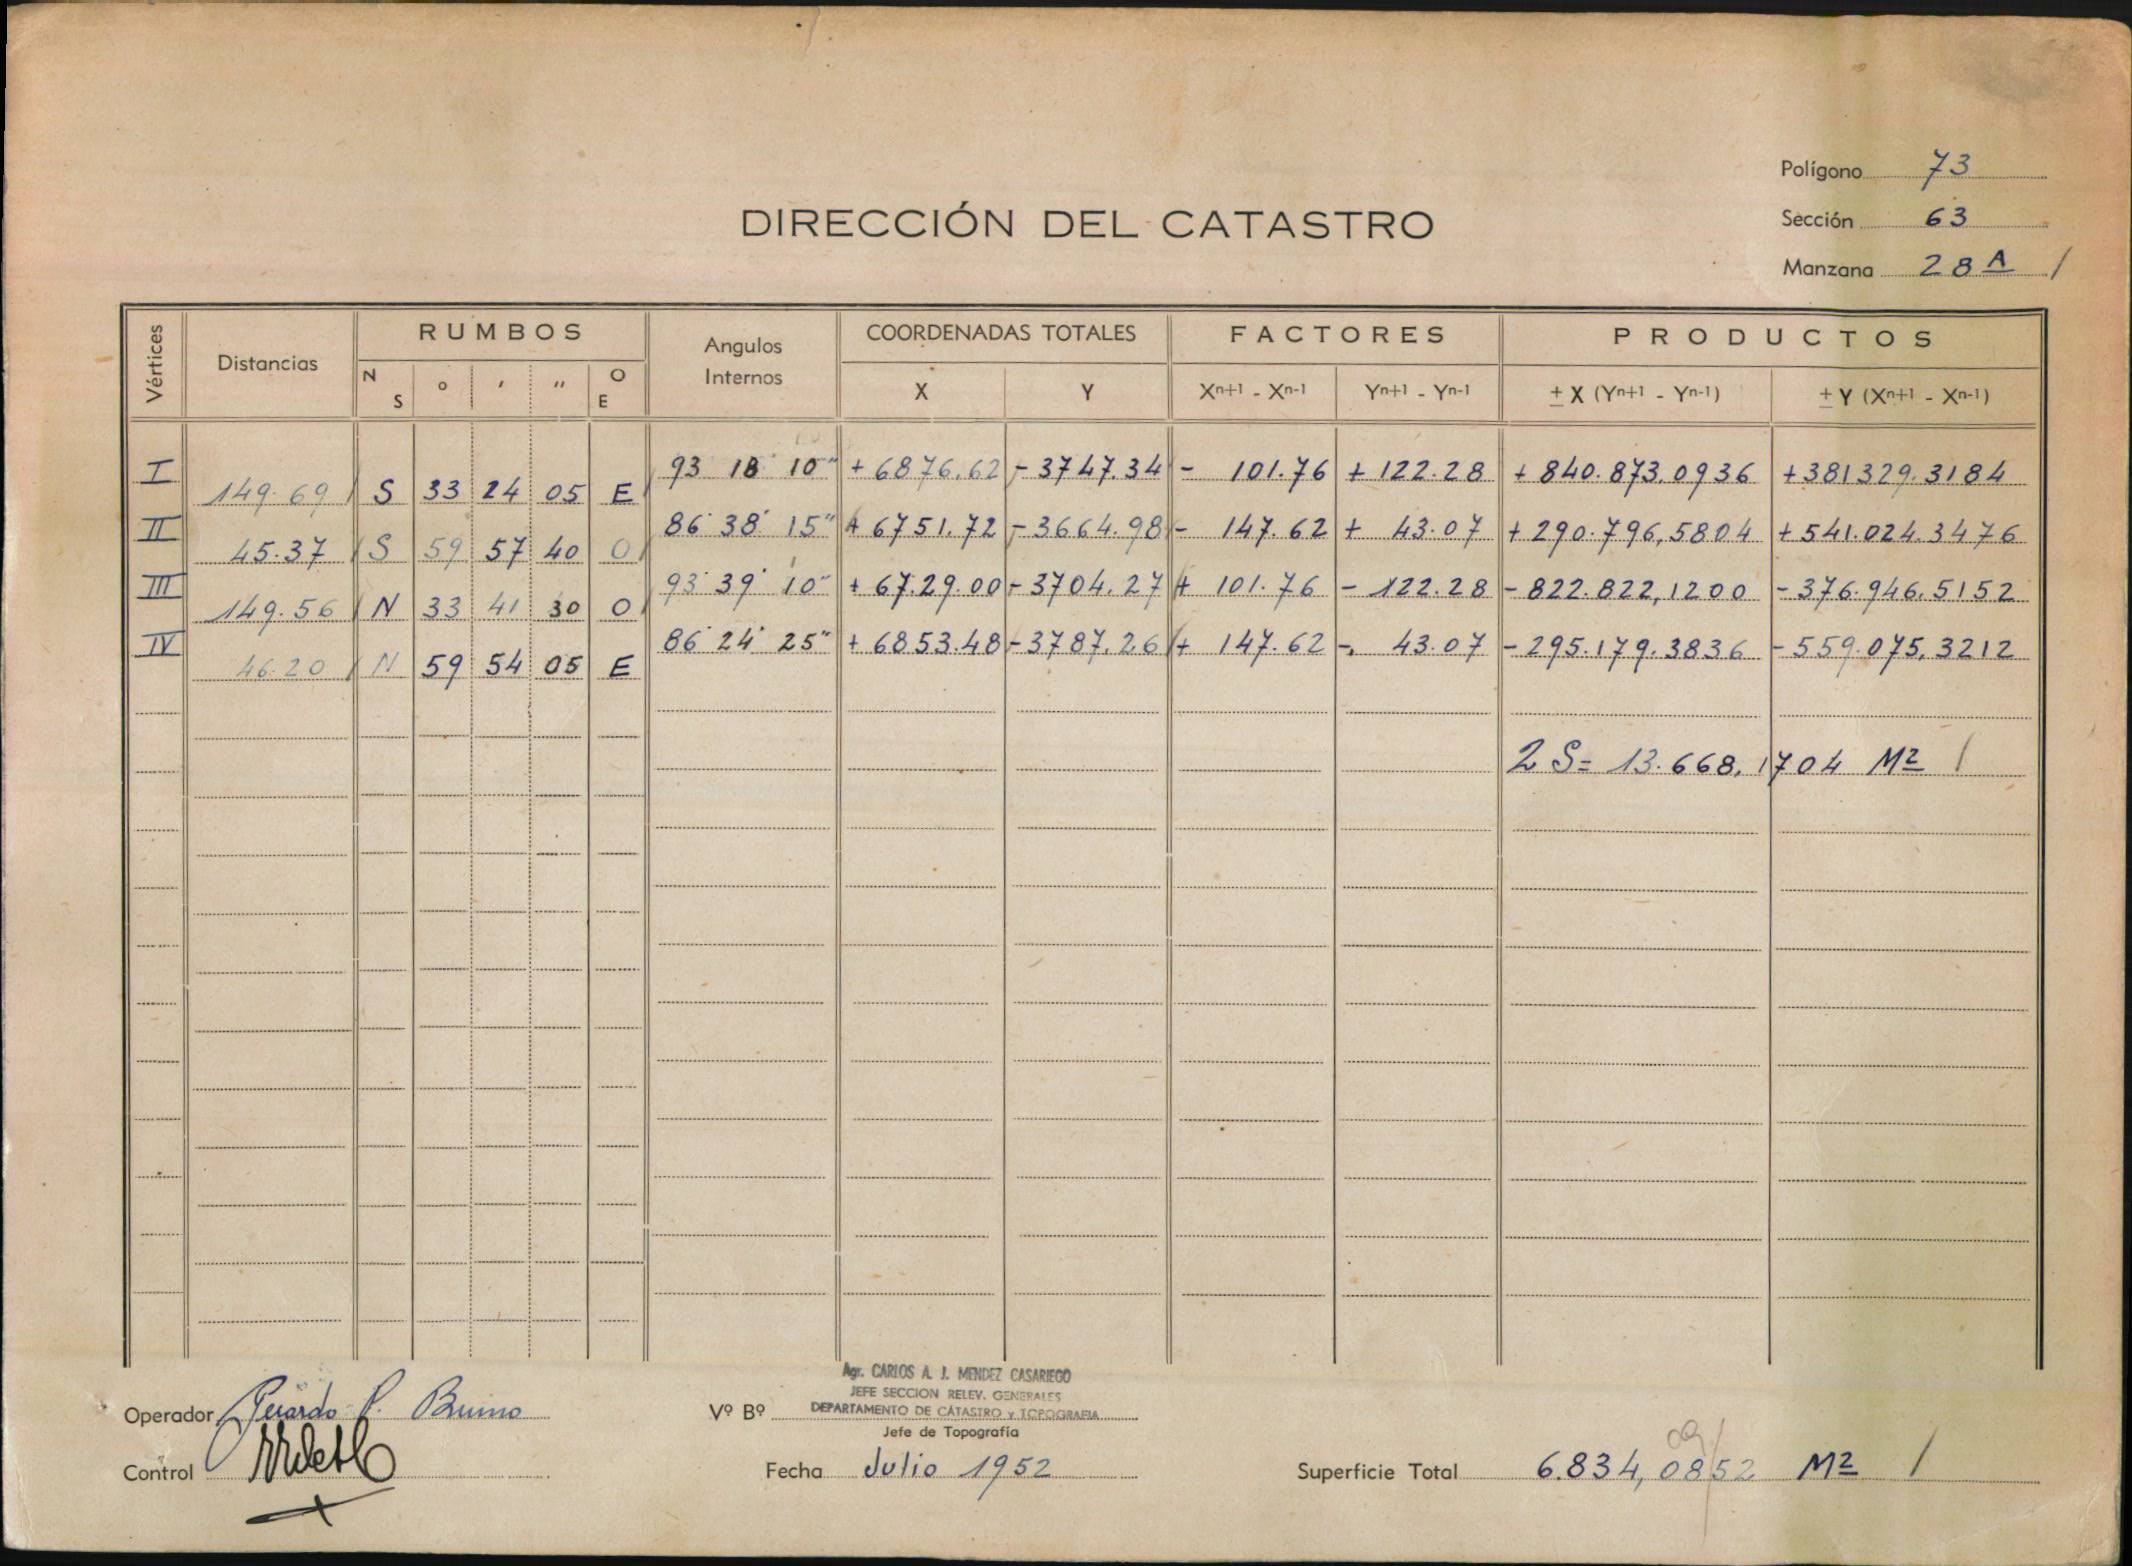 Polígono 73
DIRECCIÓN DEL CATASTRO
Sección 63
Manzana 28 A /
Vértices Distancias RUMBOS Angulos Internos COORDENADAS TOTALES FACTORES PRODUCTOS
N S ° ' " O E X Y Xn+1 - Xn-1 Yn+1 - Yn-1 ± X (Yn+1 - Yn-1) ± Y (Xn+1 - Xn-1)
I 93 18 10" + 6876.62 - 3747.34 - 101.76 + 122.28 + 840.873.0936 + 381329.3184
149.69 / S 33 24 05 E /
II 86° 38' 15" + 6751.72 - 3664.98 - 147.62 + 43.07 + 290.796,5804 + 541.024.3476
45.37 / S 59 57 40 O /
III 93° 39' 10" + 6729.00 - 3704.27 + 101.76 - 122.28 - 822.822,1200 - 376.946.5152
149.56 / N 33 41 30 O /
IV 86° 24' 25" + 6853.48 - 3787.26 + 147.62 - 43.07 - 295.179.3836 - 559.075.3212
46.20 / N 59 54 05 E
2 S = 13.668,1704 M2 /
Agr. CARLOS A. J. MENDEZ CASARIEGO
JEFE SECCION RELEV. GENERALES
Operador Gerardo P. Bruno Vº Bº DEPARTAMENTO DE CATASTRO y TOPOGRAFIA
Jefe de Topografía
Control Fecha Julio 1952 Superficie Total 6.834,0852 M2 /
09